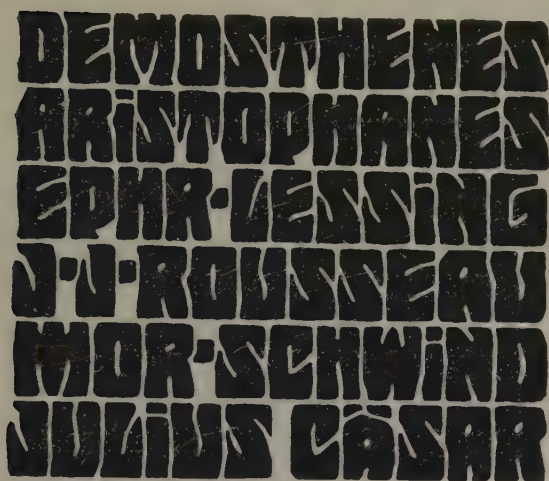 DEMOSTHENES
ARISTOPHANES
EPHR·LESSING
J·J·ROUSSEAU
MOR·SCHWIND
JULIUS CÄSAR